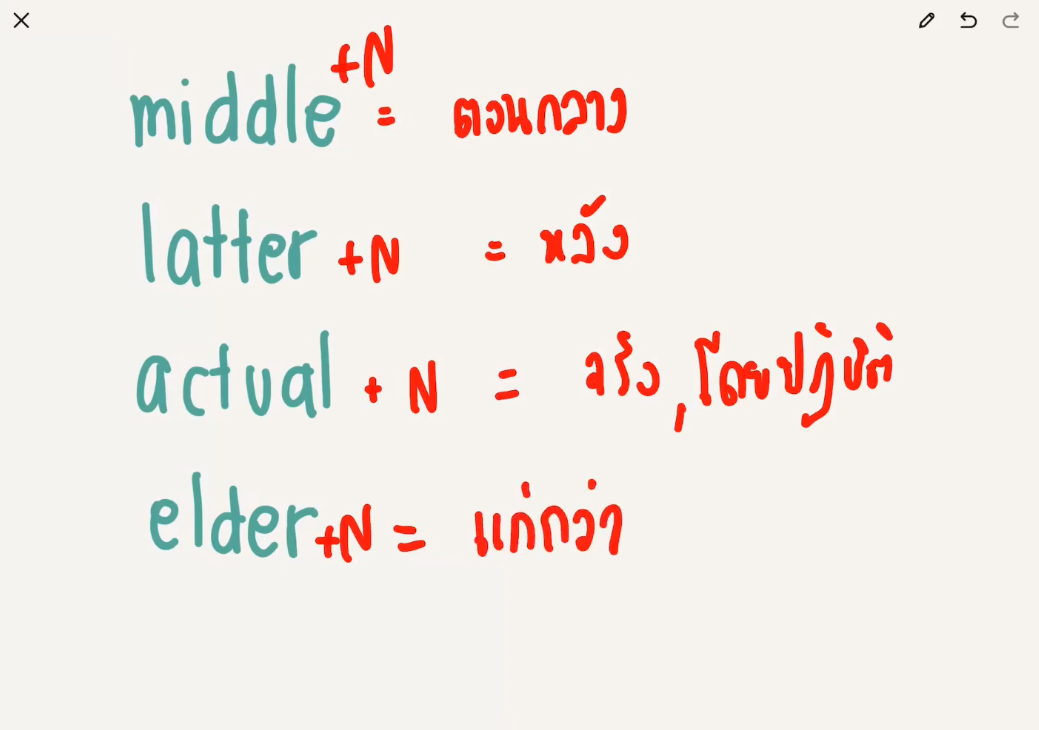 middle +N = ตอนกลาง
latter +N = หลัง
actual + N = จริง, โดยปฏิบัติ
elder +N = แก่กว่า